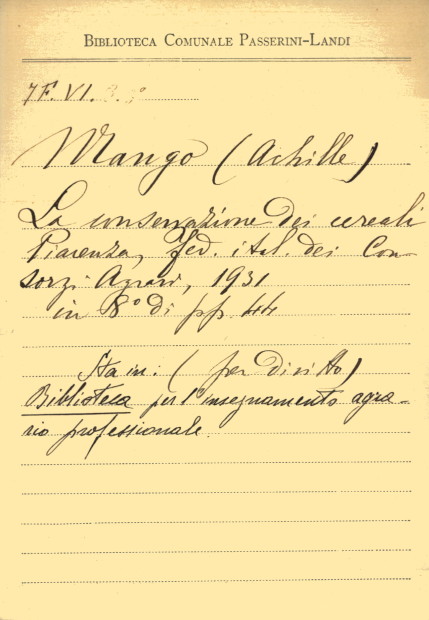 BIBLIOTECA COMUNALE PASSERINI-LANDI
7F. VI.
Mango (Achille)
La conservazione dei cereali
Piacenza, Fed. ital. dei Con-
sorzi Agrari, 1931
in 8° di pp. 44
Sta in: (per diritto)
Biblioteca per l'insegnamento agra-
rio professionale.